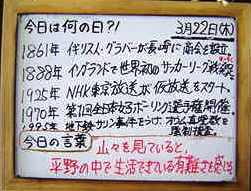 今日は何の日?!
3月22日(木)
1861年 イギリス・グラバーが長崎に商会を設立
1888年 イングランドで世界初のサッカーリーグ
1925年 NHK東京放送が仮放送をスタート。
1970年 第1回全日本プロボーリング選手権開催。
1995年 地下鉄サリン事件をうけ、オウム真理教を
強制捜査。
今日の言葉
山々を見ていると、
平野の中で生活できている有難さを感じる